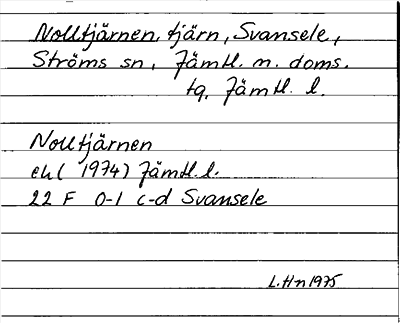 Nolltjärnen, tjärn, Svansele,
Ströms sn, Jämtl. n. doms.
tg, Jämtl. l.
Nolltjärnen
ek ( 1974) Jämtl. l.
22 F 0-1 c-d Svansele
L. Hn 1975